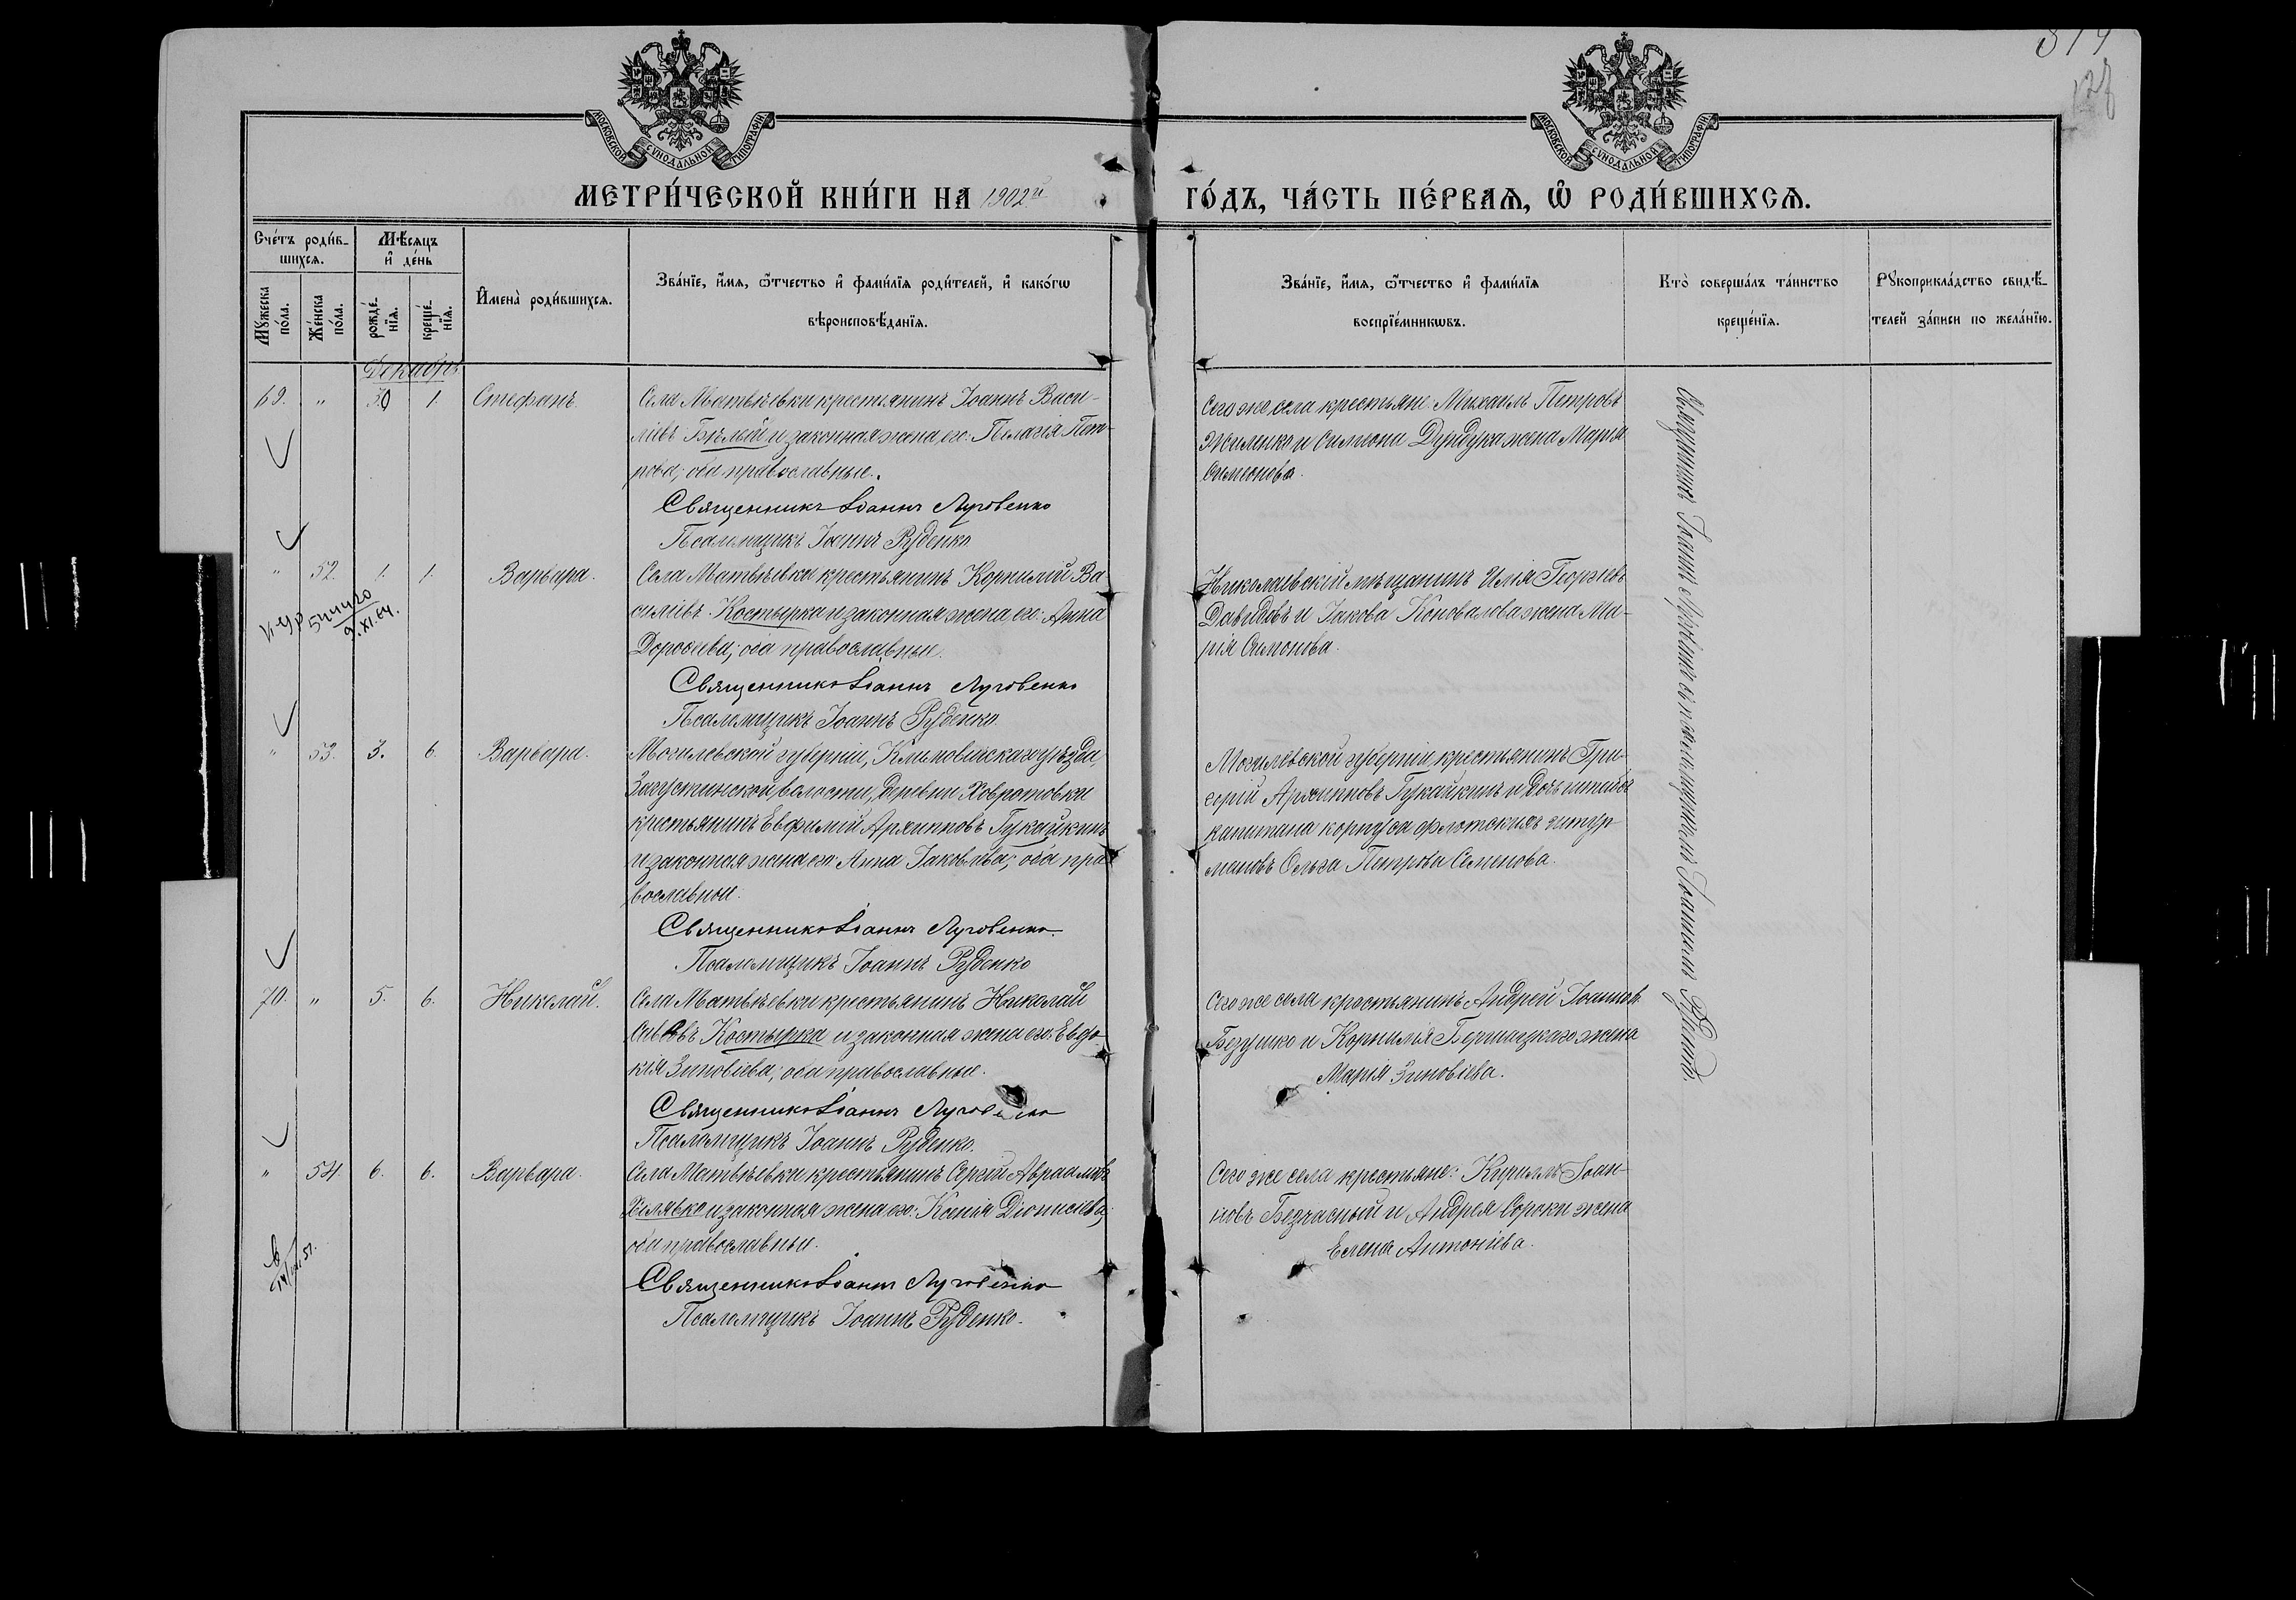 МОСКОВСКОЙ СѴНОДАЛЬНОЙ ТИПОГРАФІИ
МОСКОВСКОЙ СѴНОДАЛЬНОЙ ТИПОГРАФІИ
МЕТРИ́ЧЕСКОЙ КНИ́ГИ НА 1902й
ГО́ДЪ, ЧА́СТЬ ПЕ́РВАѦ, Ѡ РОДИ́ВШИХСѦ.
Сче́тъ роди́в-
шихсѧ.
Мѣ́сѧцъ
и҆ де́нь
Мꙋ́жеска
по́ла.
Же́нска
по́ла.
рожде́-
нїѧ.
креще́-
нїѧ.
И҆мена̀ роди́вшихсѧ.
Зва́нїе, и҆́мѧ, ѻ҆́тчество и҆ фами́лїѧ роди́телей, и҆ како́гѡ
вѣроисповѣ́данїѧ.
Зва́нїе, и҆́мѧ, ѻ҆́тчество и҆ фами́лїѧ
воспрїе́мникѡвъ.
Кто̀ соверша́лъ та́инство
креще́нїѧ.
Рꙋкоприкла́дство свидѣ́-
телей за́писи по жела́нїю.
Декабрь
69. " 30 1. Стефанъ.
Села Матвѣевки крестьянинъ Іоаннъ Васи-
ліевъ Бѣлый и законная жена его: Пелагія Пет-
рова; оба православные.
Священникъ Іоаннъ Луговенко
Псаломщикъ Іоаннъ Руденко.
Сего же села крестьяне: Михаилъ Петровъ
Жиленко и Симеона Дундука жена Марія
Симеонова.
" 52. 1. 1. Варвара.
9.XI.64.
Села Матвѣевки крестьянинъ Корнилій Ва-
силіевъ Костырка и законная жена его: Анна
Дорофеева; оба православные.
Священникъ Іоаннъ Луговенко
Псаломщикъ Іоаннъ Руденко.
Николаевскій мѣщанинъ Илія Георгіевъ
Давидовъ и Іакова Коновалова жена Ма-
рія Симонова.
" 53. 3. 6. Варвара.
Могилевской губерніи, Климовійскаго уѣзда,
волости, деревни Ховротовки
крестьянинъ Евфимій Архипповъ Гукайкинъ
и законная жена его: Анна Іаковлева; оба пра-
вославные.
Священникъ Іоаннъ Луговенко.
Псаломщикъ Іоаннъ Руденко
Могилевской губерніи крестьянинъ Гри-
горій Архипповъ Гукайкинъ и дочь штабсъ
капитана корпуса флотскихъ штур-
мановъ Ольга Петрова Семенова.
70. " 5. 6. Николай.
Села Матвѣевки крестьянинъ Николай
Саввовъ Костырка и законная жена его: Евдо-
кія Зиновіева; оба православные.
Священникъ Іоаннъ Луговенко
Псаломщикъ Іоаннъ Руденко.
Сего же села крестьянинъ Андрей Іоанновъ
и Корнилія жена
Марія Зиновіева.
" 54. 6. 6. Варвара.
Села Матвѣевки крестьянинъ Сергій Авраамовъ
Халявко и законная жена его: Ксенія Діонисіева;
оба православные.
Священникъ Іоаннъ Луговенко
Псаломщикъ Іоаннъ Руденко.
Сего же села крестьяне: Кириллъ Іоан-
новъ Безчасный и Андрея Сороки жена
Елена Антоніева.
Священникъ Іоаннъ Луговенко съ псаломщикомъ Іоанномъ Руденко.